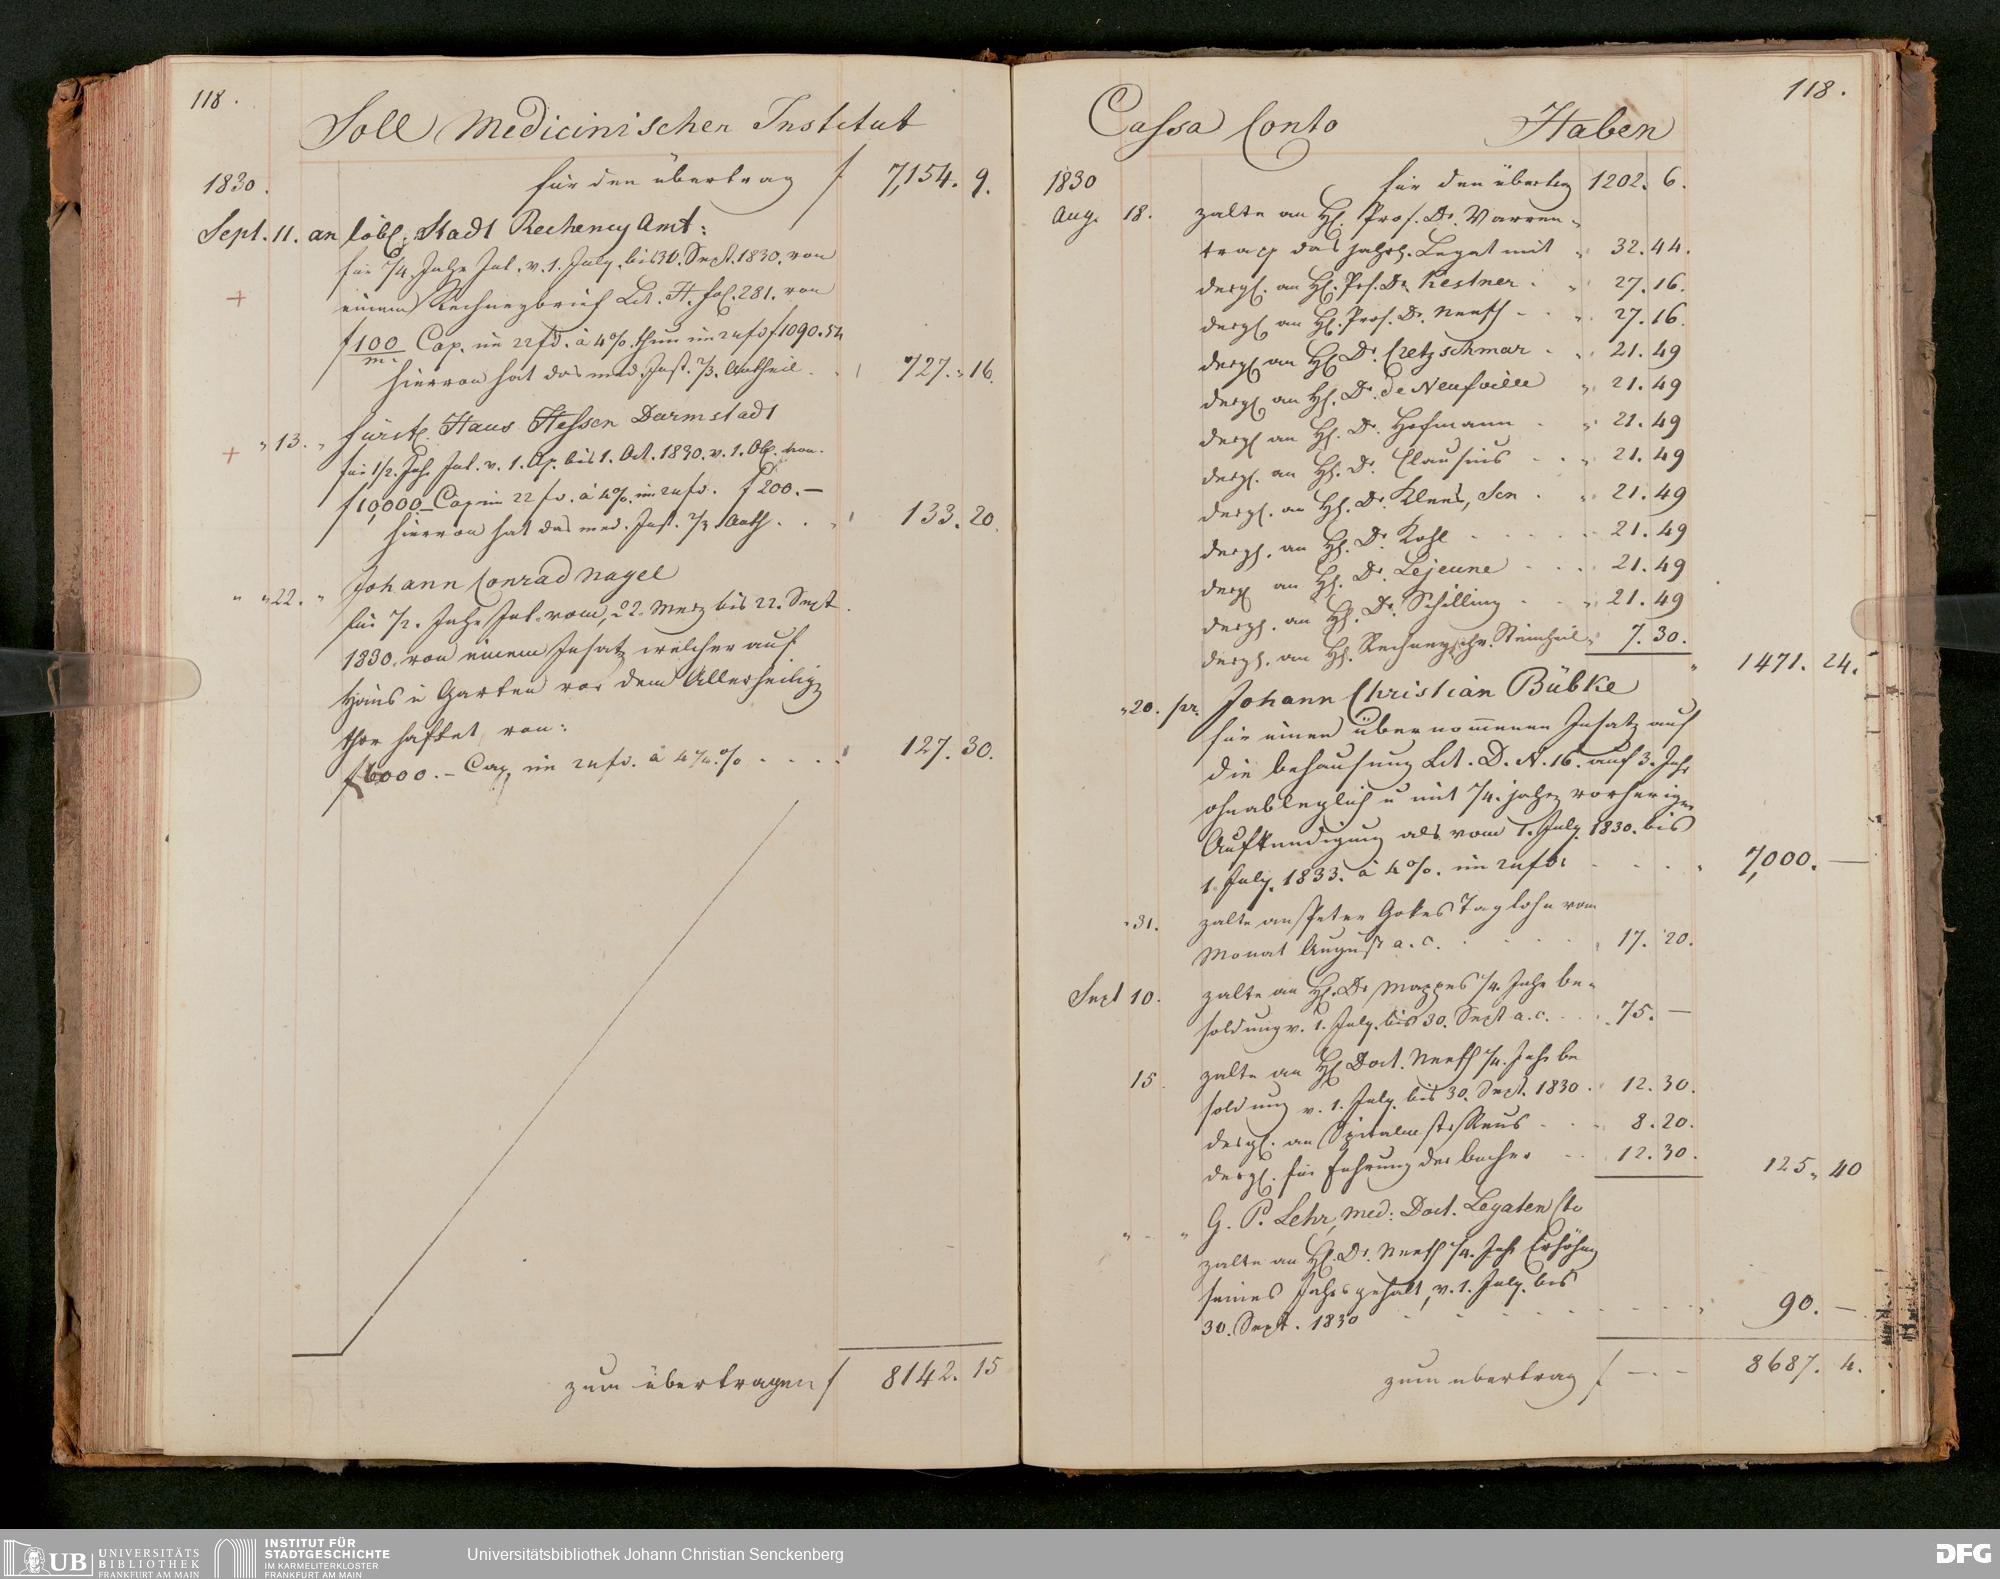 118.
Soll Medicinischer Institut
1830.
für den übertrag f 7,154. 9.
Sept. 11. an löbl. Stadt Recheney Amt:
für 1/4 Jahr Int. v. 1. July bis 30. Sept. 1830. von
einem Rechneybrief Lit. H. fol. 281. von
f 100/m. Cap. im 22 fl. à 4%. thun im 24 fl. f 1090.54
hiervon hat das med. Inst. 2/3. Antheil. 727. 16.
" 13. " fürstl. Haus Hessen Darmstadt
für 1/2. Jahr Int. v. 1. Ap. bis 1. Oct. 1830. v. 1. Obl. von
f 10,000 Cap im 22 fl. à 4%. im 24 fl. f 200.—
hiervon hat das med. Inst. 2/3 Anth. 133. 20.
" " 22. " Johann Conrad Nagel
für 1/2. Jahr Int. vom 22. Merz bis 22. Sept
1830. von einem Insatz welcher auf
Haus u Garten vor dem Allerheilig
thor haftet, von:
f 6000.— Cap. im 24 fl. à 4 1/4.% 127. 30.
zum übertragen f 8142. 15
118.
Cassa Conto Haben
1830 für den übertrag 1202. 6.
Aug. 18. zalte an H. Prof. Dr. Varren-
trapp das jahrl. Legat mit " 32. 44.
desgl. an H. Prof. Dr. Kestner. " 27. 16.
desgl. an H. Prof. Dr. Neeff - - " 27. 16.
desgl. an H. Dr. Cretzschmar. " 21. 49
desgl. an H. Dr. de Neufville " 21. 49
desgl. an H. Dr. Hofmann . " 21. 49
desgl. an H. Dr. Clausius - . " 21. 49
desgl. an H. Dr. Kloos, Sen . " 21. 49
desgl. an H. Dr. Kohl . . . . 21. 49
desgl. an H. Dr. Lejeune . . . 21. 49
desgl. an H. Dr. Schilling - . " 21. 49
desgl. an H. Rechneyschr. Steinheil " 7. 30.
" 1471. 24.
" 20. pr. Johann Christian Bübke
für einen übernommenen Insatz auf
die behausung Lit. D. N. 16. auf 3. Jahr
ohnableglich u mit 1/4. jahr vorheriger
Aufkundigung als vom 1. July 1830. bis
1. July. 1833. à 4%. im 24 fl. . . . . " 7,000. —
" 31. zalte an Peter Gokes Taglohn vom
Monat August a. c. . . . . 17. 20.
Sept 10. zalte an H. Dr. Mappes 1/4. Jahr be-
soldung v. 1. July. bis 30. Sept a. c. . . 75. —
15. zalte an H. Doct. Neeff 1/4. Jahr be
soldung v. 1. July. bis 30. Sept. 1830 . 12. 30.
desgl. an Spitalmstr Reus . . 8. 20.
desgl. für Führung der bucher - - 12. 30.
125. 40
" - " G. P. Lehr, med: Doct. Legaten Cto
zalte an H. Dr. Neeff 1/4. Jahr Erhöhng
seines Jahrsgehalt, v. 1. July. bis
30. Sept. 1830 . . . . . . . . 90. —
zum ubertrag f — . — 8687. 4.
UB UNIVERSITÄTS
BIBLIOTHEK
FRANKFURT AM MAIN
INSTITUT FÜR
STADTGESCHICHTE
IM KARMELITERKLOSTER
FRANKFURT AM MAIN
Universitätsbibliothek Johann Christian Senckenberg
DFG